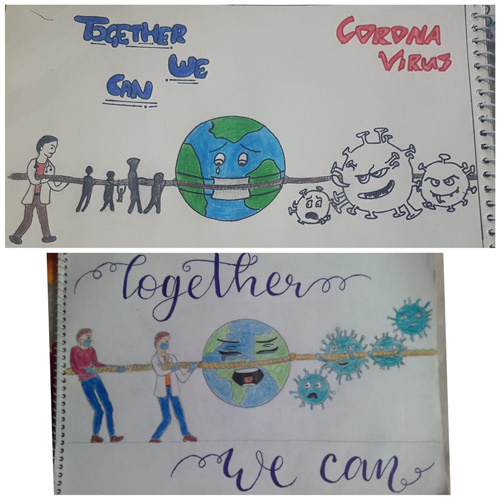 TOGETHER
WE
CAN
CORONA
VIRUS
Together
We can